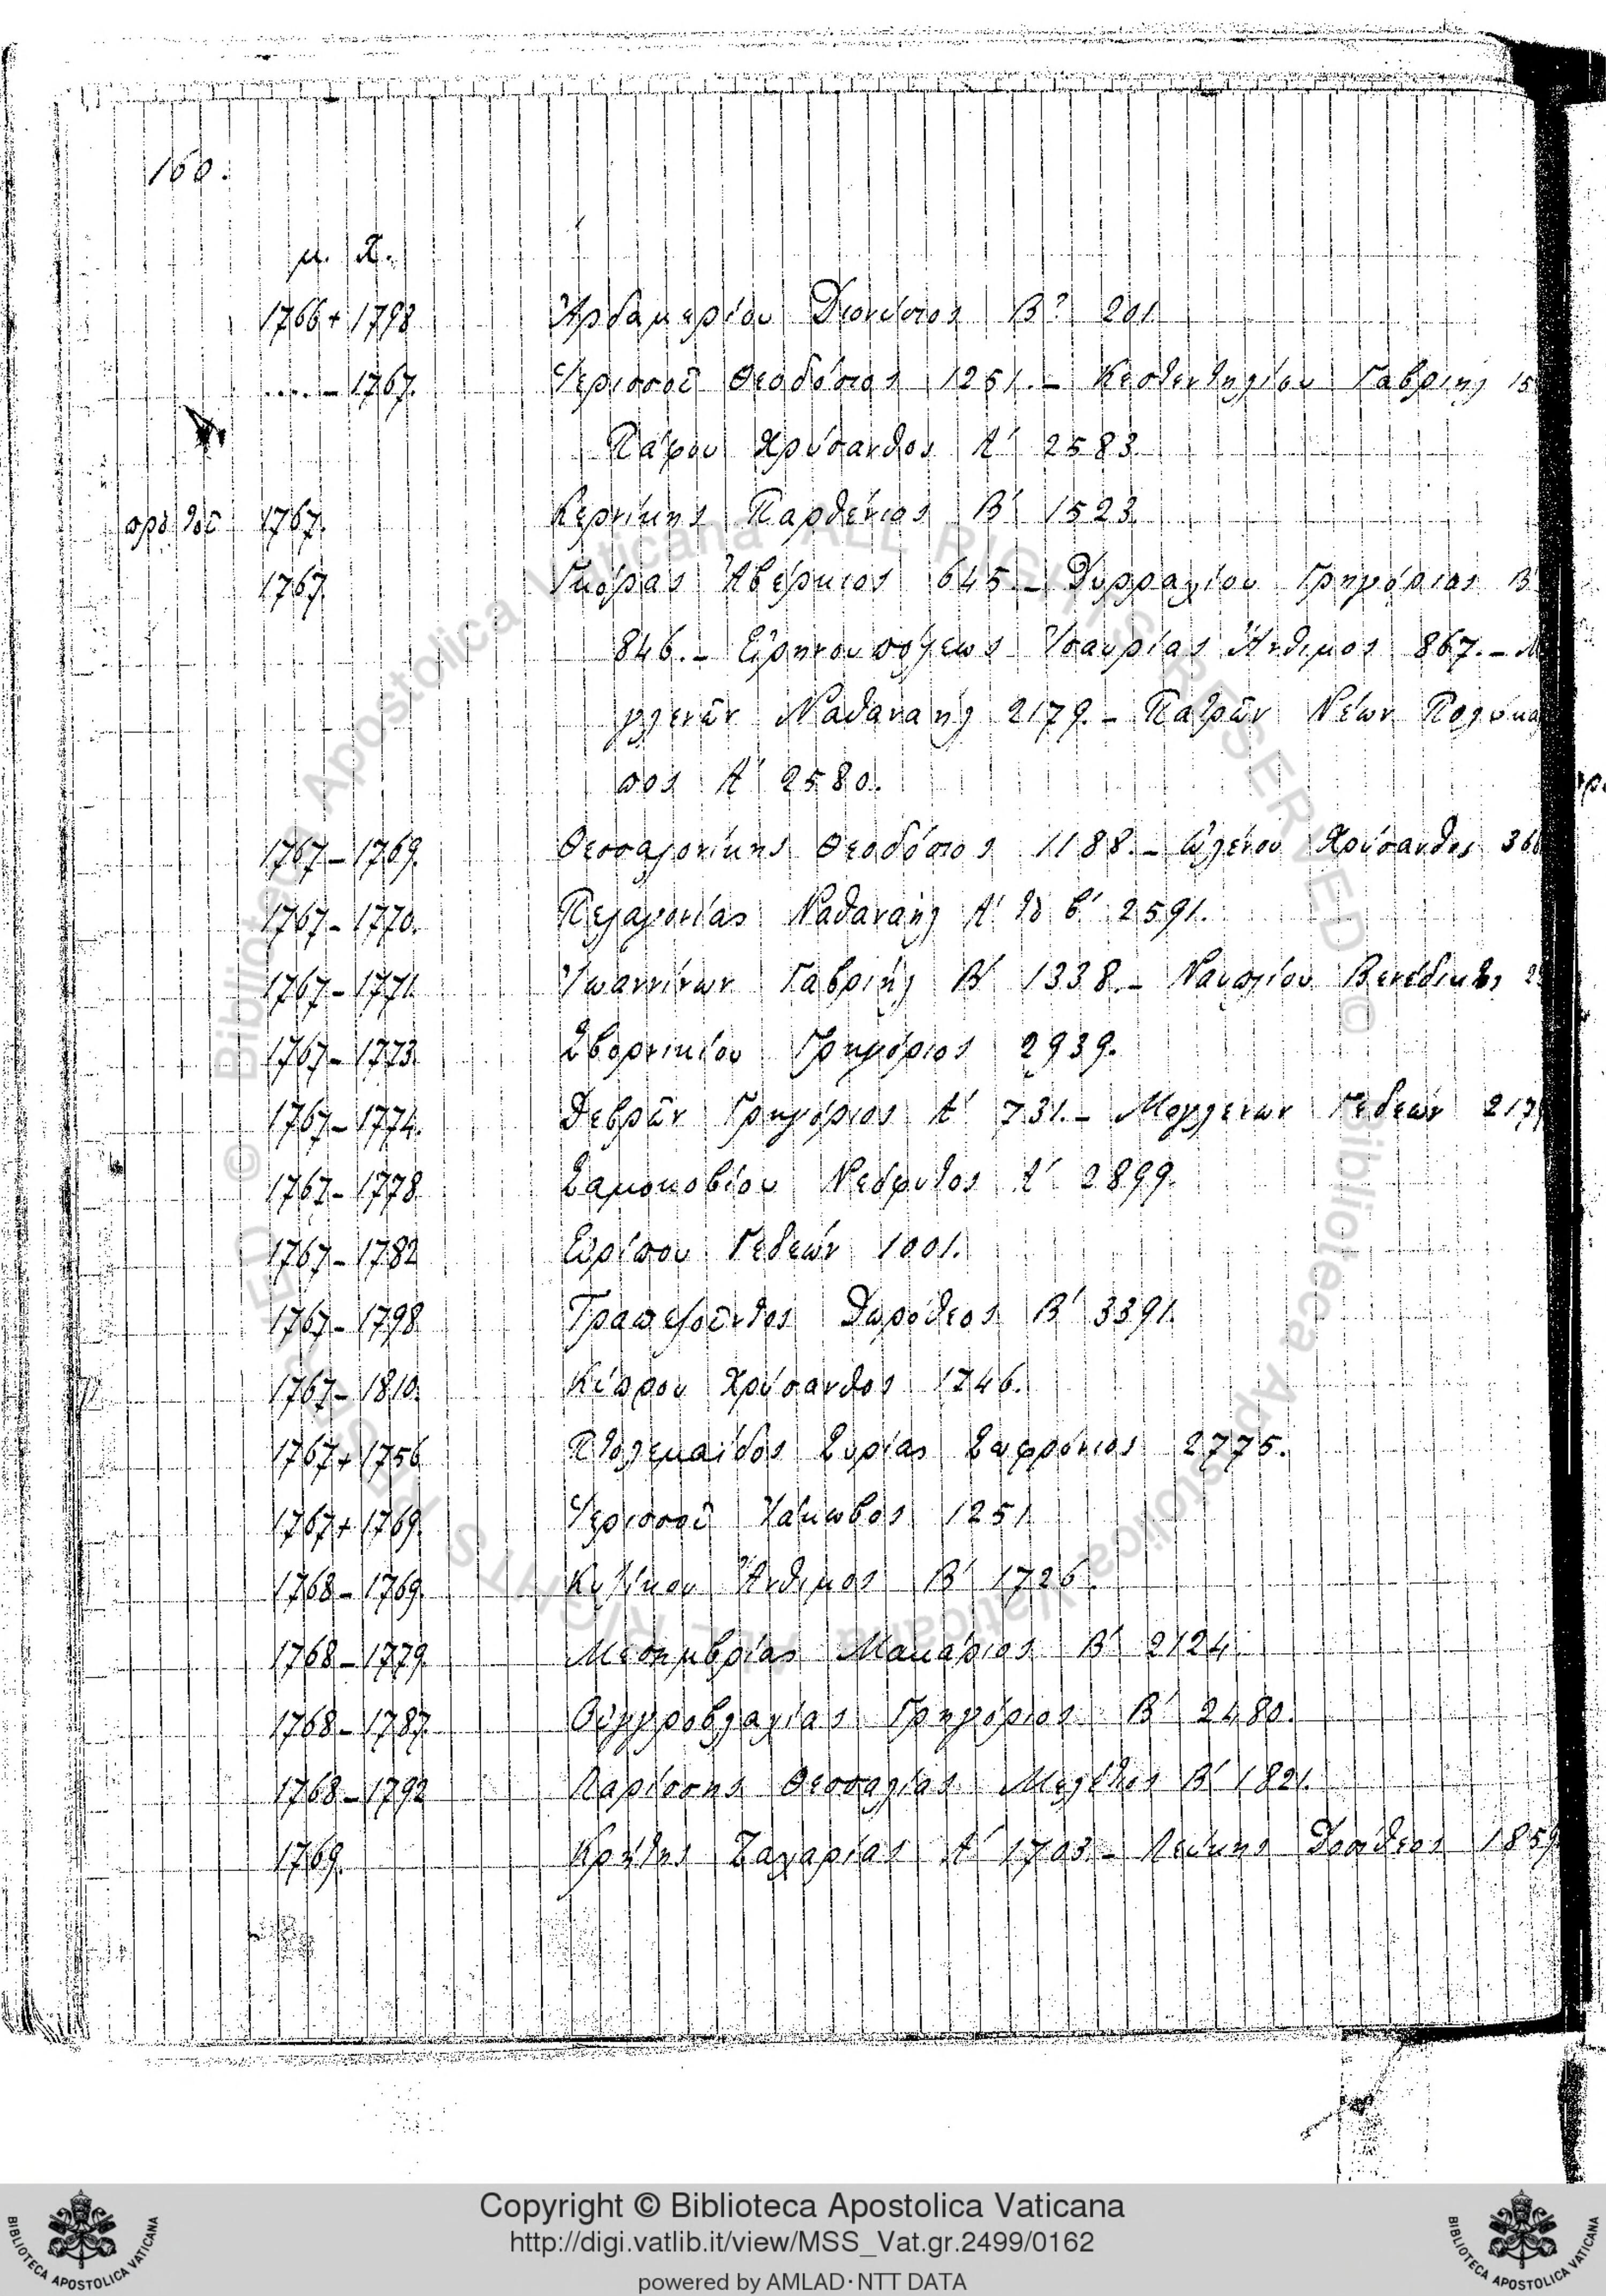 160.
μ. Χ.
1766 + 1798 Ἀρδαμερίου Διονύσιος Β? 201
.... – 1767. Ἱερισσοῦ Θεοδόσιος 1251. – Κεστεντηλίου Γαβριηλ 15
Πάφου Χρύσανθος Α′ 2583
πρὸ τοῦ 1767. Κερνίκης Παρθένιος Β′ 1523.
1767. Γκόρας Ἀβέρκιος 645 – Δυρραχίου Γρηγόριος Β
846. – Εἰρηνουπόλεως Ἰσαυρίας Ἄνθιμος 867. – Μ
γλενῶν Ναθαναὴλ 2179. – Πατρῶν Νέων Πολύκα
πος Α′ 2580.
1767 – 1769. Θεσσαλονίκης Θεοδόσιος 1188. – Ὠλένου Χρύσανθος 366
1767 – 1770. Πελαγονίας Ναθαναὴλ Α′ τὸ β′ 2591.
1767 – 1771. Ἰωαννίνων Γαβριὴλ Β′ 1338. – Ναυπλίου Βενέδικτος 2
1767 – 1773. Σβορνικίου Γρηγόριος 2939.
1767 – 1774. Δεβρῶν Γρηγόριος Α′ 731. – Μογλενων Γεδεὼν 217
1767 – 1778 Σαμοκοβίου Νεόφυτος Α′ 2899.
1767 – 1782 Εὐρίπου Γεδεών 1001.
1767 – 1798 Τραπεζοῦντος Δωρόθεος Β′ 3391.
1767 – 1810. Κύπρου Χρύσανθος 1746.
1767 + 1756 Πτολεμαΐδος Συρίας Σωφρόνιος 2775.
1767 + 1769 Ἱερισσοῦ Ἰάκωβος 1251
1768 – 1769. Κυζίκου Ἄνθιμος Β′ 1726.
1768 – 1779. Μεσημβρίας Μακάριος Β′ 2124.
1768 – 1787. Οὑγγροβλαχίας Γρηγόριος Β′ 2480.
1768 – 1792 Λαρίσσης Θεσσαλίας Μελέτιος Β′ 1821.
1769. Κρήτης Ζαχαρίας Α′ 1703 – Λεύκης Δοσίθεος 1859
Copyright © Biblioteca Apostolica Vaticana
http://digi.vatlib.it/view/MSS_Vat.gr.2499/0162
powered by AMLAD·NTT DATA
BIBLIOTECA APOSTOLICA VATICANA
BIBLIOTECA APOSTOLICA VATICANA